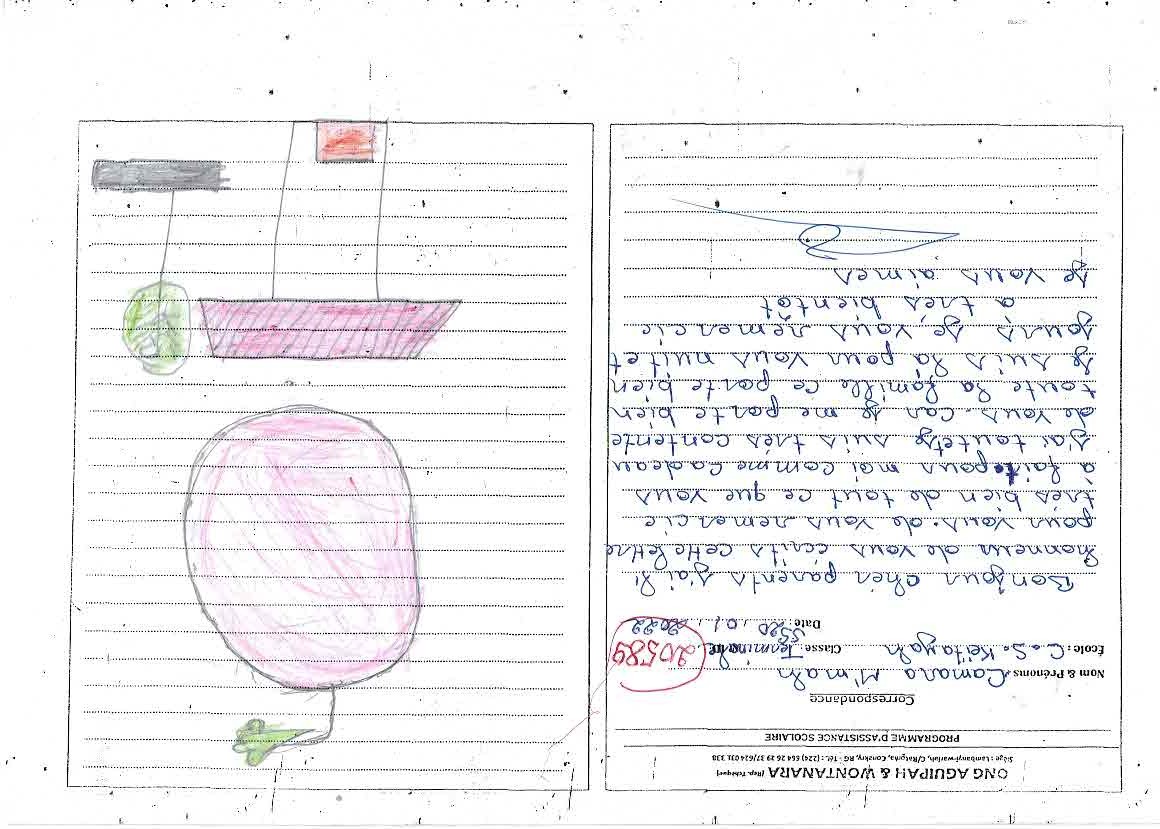 ONG AGUIPAH & WONTANARA (Rep. Tchèque)
PROGRAMME D'ASSISTANCE SCOLAIRE
Correspondance
Nom & Prénoms: Camara M'mah
École: C.S. Keitayah Classe: Terminale
20589
Date 20 01 2022
Bonjour cher parents j'ai l'
honneur de vous écrits cette lettre
pour vous. de vous remercie
très bien de tout ce que vous
à fait pour moi comme cadeau
j'ai toutes suis très contente
de vous. car je me porte bien
toute la famille ce porte bien
je suis là pour vous nuit et
jours je vous remercie
à très bientôt
je vous aimes